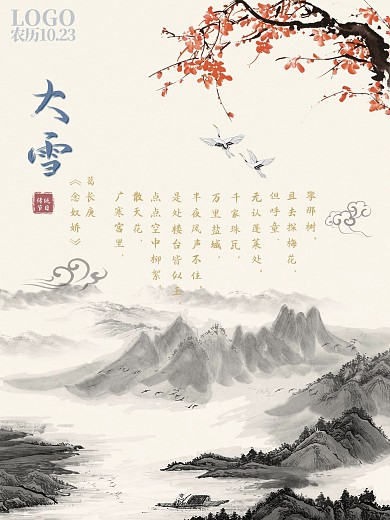 LOGO
农历10.23
大雪
传统
节日
《念奴娇》
葛长庚
广寒宫里，
散天花，
点点空中柳絮。
是处楼台皆似玉
半夜风声不住。
万里盐城，
千家珠瓦，
无认蓬莱处。
但呼童，
且去探梅花，
攀那树。